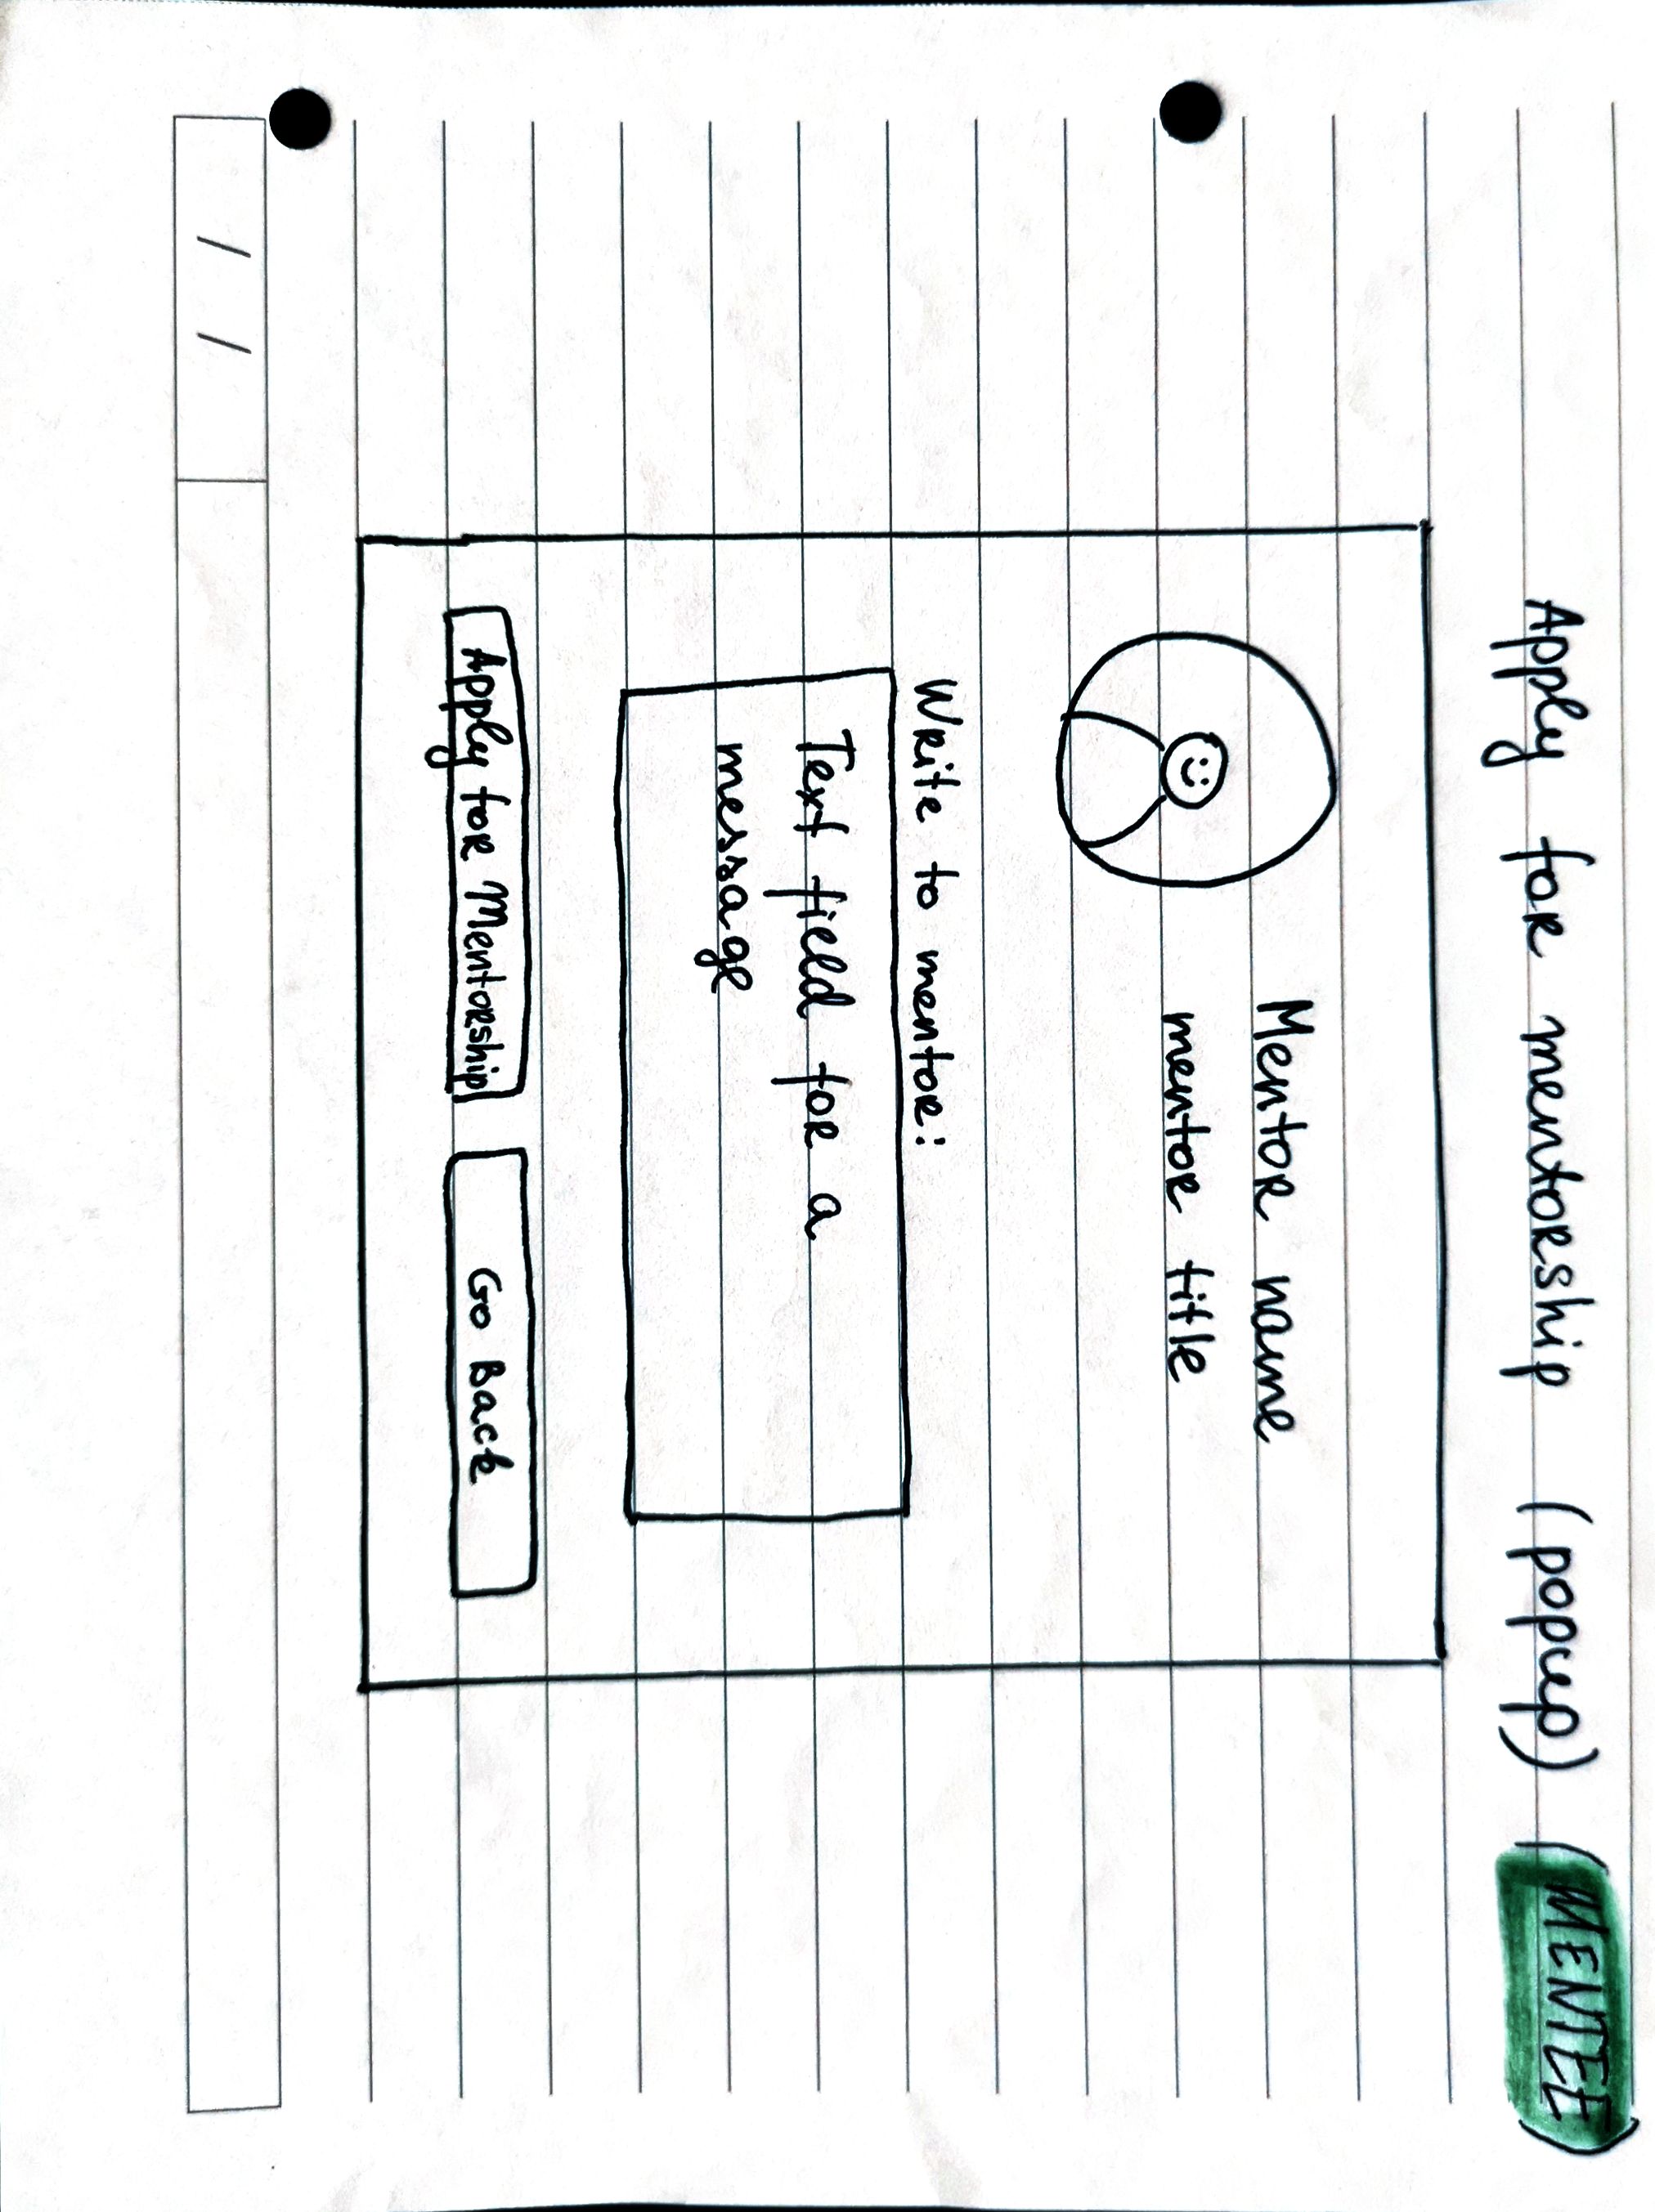 Apply for mentorship (popup) (MENTEE)
Mentor name
mentor title
Write to mentor:
Text field for a
message
Apply for Mentorship
Go Back
/ /